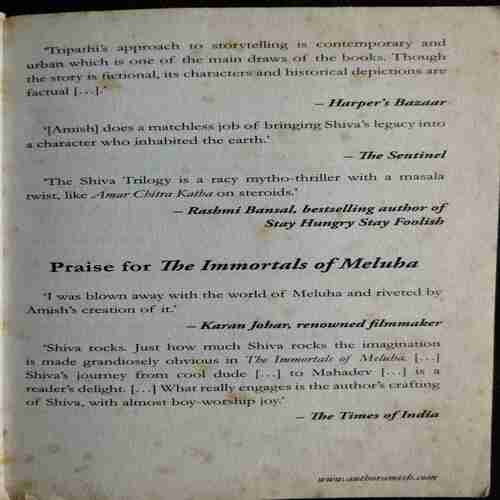 'Tripathi's approach to storytelling is contemporary and
urban which is one of the main draws of the books. Though
the story is fictional, its characters and historical depictions are
factual [...].'
– Harper's Bazaar
'[Amish] does a matchless job of bringing Shiva's legacy into
a character who inhabited the earth.'
– The Sentinel
'The Shiva Trilogy is a racy mytho-thriller with a masala
twist, like Amar Chitra Katha on steroids.'
– Rashmi Bansal, bestselling author of
Stay Hungry Stay Foolish
Praise for The Immortals of Meluha
'I was blown away with the world of Meluha and riveted by
Amish's creation of it.'
– Karan Johar, renowned filmmaker
'Shiva rocks. Just how much Shiva rocks the imagination
is made grandiosely obvious in The Immortals of Meluha. [...]
Shiva's journey from cool dude [...] to Mahadev [...] is a
reader's delight. [...] What really engages is the author's crafting
of Shiva, with almost boy-worship joy.'
– The Times of India
www.authoramish.com